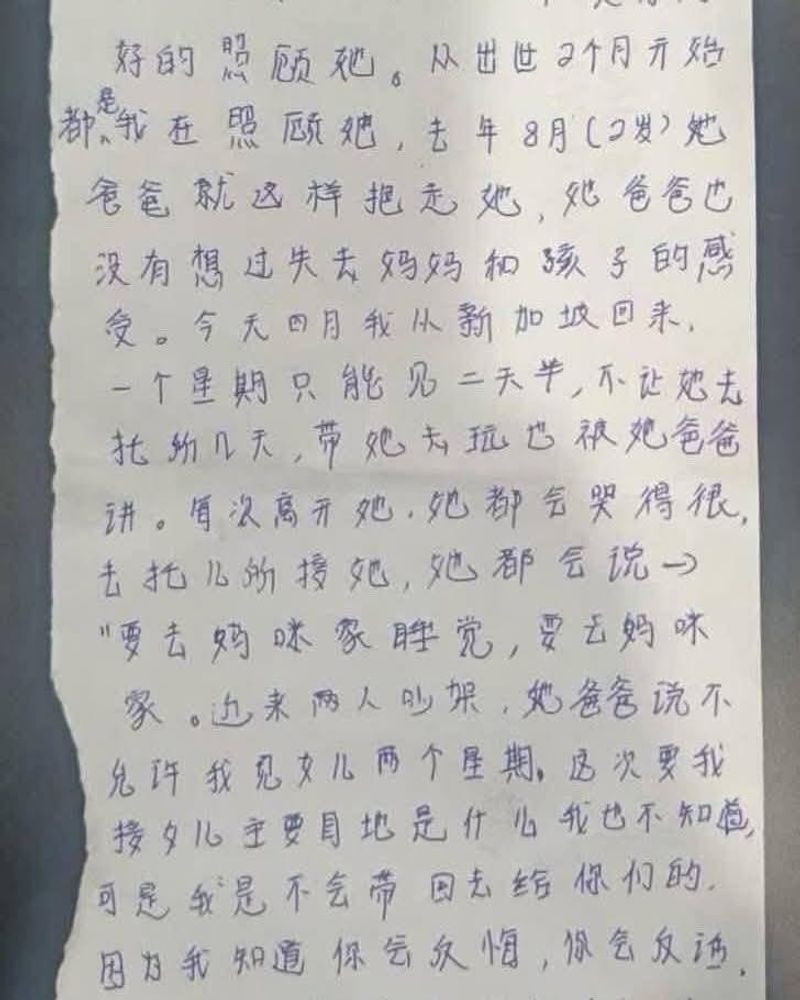 好的照顾她。从出世2个月开始
都是我在照顾她，去年8月(2岁)她
爸爸就这样抱走她，她爸爸也
没有想过失去妈妈和孩子的感
受。今天四月我从新加坡回来，
一个星期只能见二天半，不让她去
托所几天，带她去玩也被她爸爸
讲。每次离开她，她都会哭得很，
去托儿所接她，她都会说→
"要去妈咪家睡觉，要去妈咪
家。近来两人吵架，她爸爸说不
允许我见女儿两个星期。这次要我
接女儿主要目地是什么我也不知道，
可是我是不会带回去给你们的，
因为我知道你会反悔，你会反话，